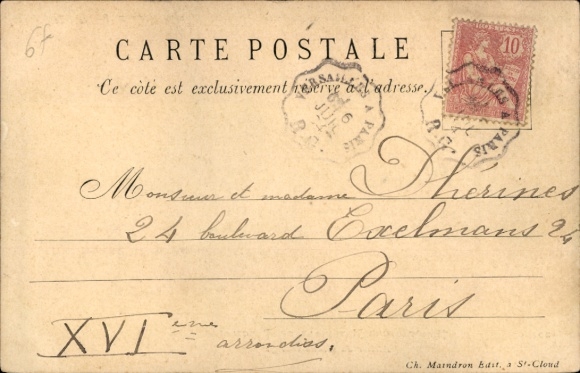 6f
CARTE POSTALE
Ce côté est exclusivement réservé à l'adresse.
VERSAILLES A PARIS
6
JUIL
R.G.
10
VERSAILLES A PARIS
R.G.
Monsieur et madame Thérines
24 boulevard Exelmans 24
Paris
XVIeme
arrondiss.
Ch. Maindron Edit. à St-Cloud